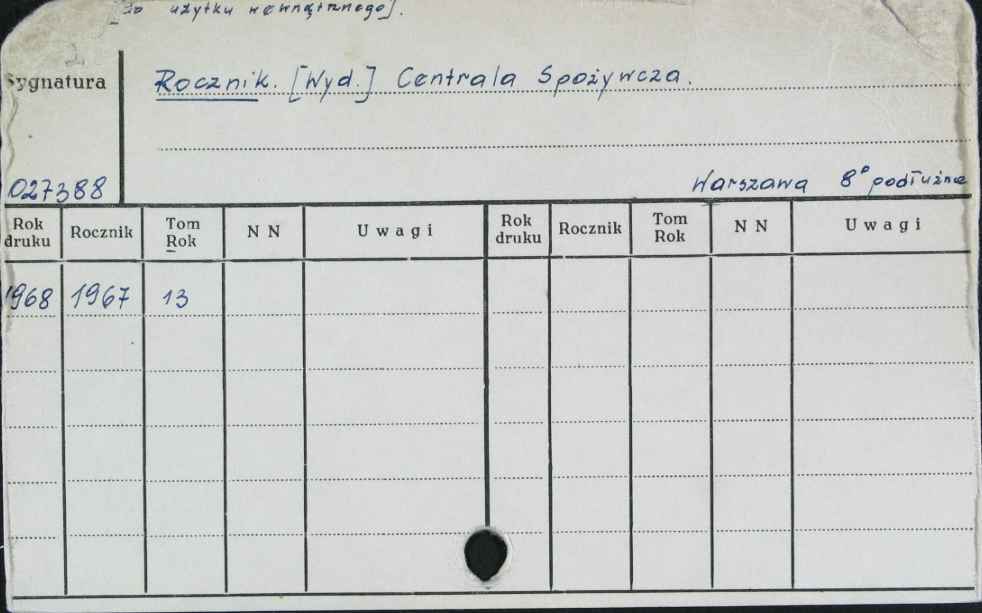 [Do użytku wewnętrznego].
Sygnatura
Rocznik. [Wyd.] Centrala Spożywcza.
027388
Warszawa 8° podłużne
Rok druku Rocznik Tom Rok N N Uwagi Rok druku Rocznik Tom Rok N N Uwagi
1968 1967 13